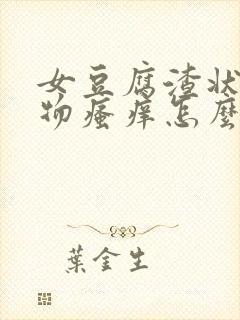 女豆腐渣状
物瘙痒怎麼
葉金生